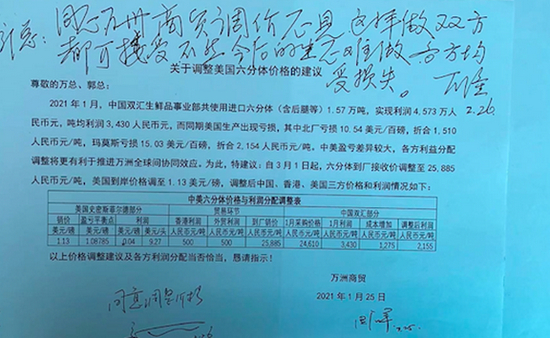 都可接受 不然 今后的生意难做 各方均
受损失。
2.26
关于调整美国六分体价格的建议
尊敬的万总、郭总:
2021 年 1 月,中国双汇生鲜品事业部共使用进口六分体(含后腿等)1.57 万吨,实现利润 4,573 万人
民币元,吨均利润 3,430 人民币元,而同期美国生产出现亏损,其中北厂亏损 10.54 美元/百磅,折合 1,510
人民币元/吨,玛莫斯亏损 15.03 美元/百磅,折合 2,154 人民币元/吨,中美盈亏差异较大,各方利益分配
调整将更有利于推进万洲全球间协同效应。为此,特建议:自 3 月 1 日起,六分体到厂接收价调整至 25,885
人民币元/吨,美国到岸价格调至 1.13 美元/磅,调整后中国、香港、美国三方价格和利润情况如下:
中美六分体价格与利润分配调整表
美国史密斯菲尔德部分 贸易环节 中国双汇部分
销价 盈亏平衡点 利润 香港利润 外贸利润 到厂销价 1月采购价格 1月利润 成本增加 调整后利润
美元/磅 美元/磅 美元/磅 美元/头 人民币元/吨 人民币元/吨 人民币元/吨 人民币元/吨 人民币元/吨 人民币元/吨 人民币元/吨
1.13 1.08785 0.04 9.27 500 500 25,885 24,610 3,430 1,275 2,155
以上价格调整建议及各方利润分配当否恰当,恳请指示!
万洲商贸
2021 年 1 月 25 日
同意调整价格